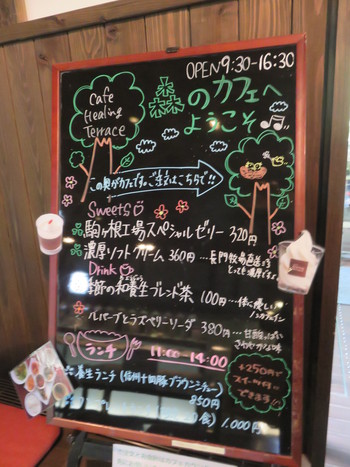 OPEN 9:30-16:30
Cafe
Healing
Terrace
森のカフェへ
ようこそ
この奥がカフェです。ご注文はこちらで!!
Sweets
駒ヶ根工場スペシャルゼリー 320円
濃厚ソフトクリーム 360円…長門牧場直送
とっても濃厚
Drink
季節の和養生ブレンド茶 100円…体に優しい
ノンカフェイン
ルバーブとラズベリーソーダ 380円…甘酸っぱい
ランチ 11:00-14:00
養生ランチ(信州十四豚ブラウンシチュー)
850円
食) 1,000円
+250円で
スイーツセット
できます!!